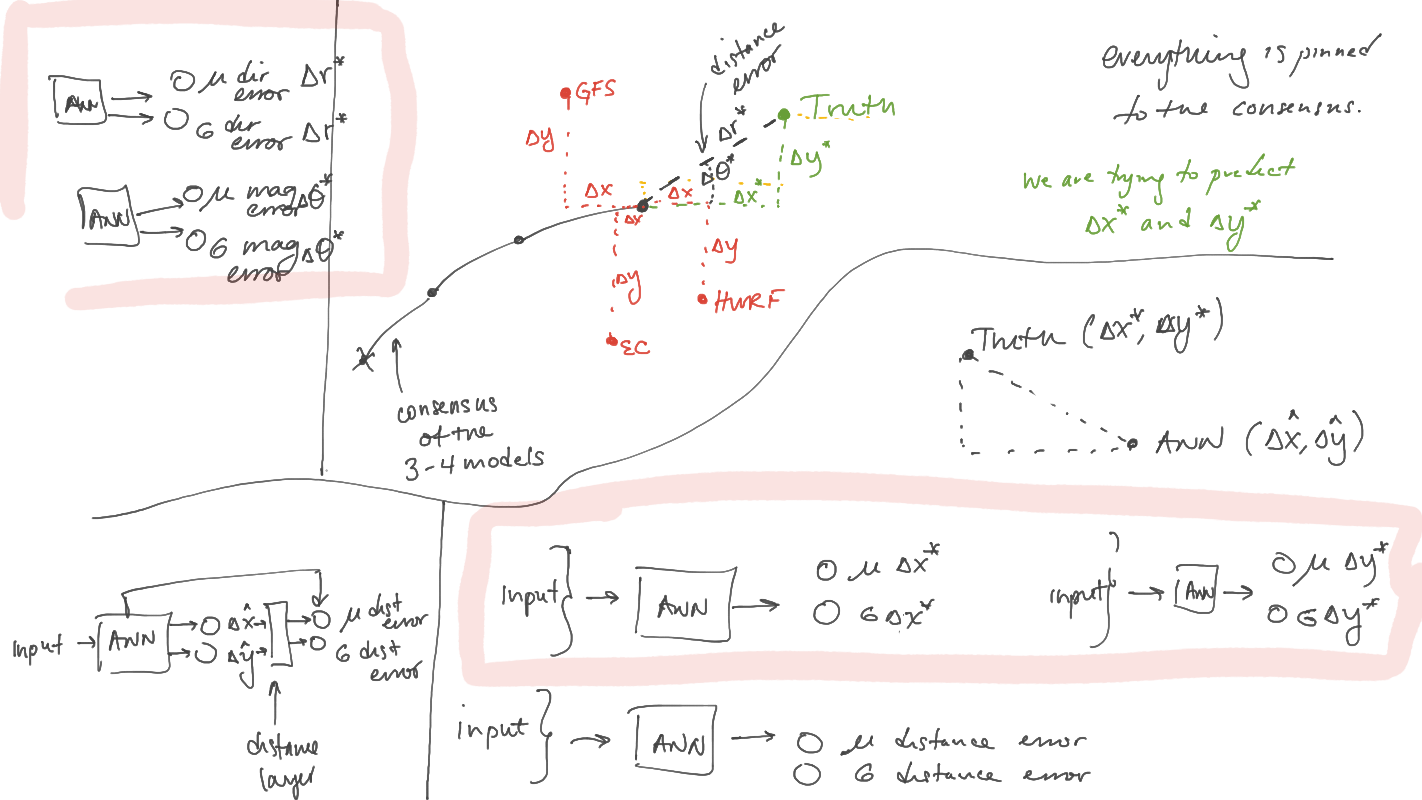 ANN
μ dir error Δr*
σ dir error Δr*
ANN
μ mag error Δθ*
σ mag error Δθ*
GFS
Δy
Δx
Δx
Δy
EC
Δx
Δy
HWRF
distance error
Δr*
Δθ*
Truth
Δy*
Δx*
consensus
of the
3-4 models
everything is pinned
to the consensus.
We are trying to predict
Δx* and Δy*
Truth (Δx*, Δy*)
ANN (Δx̂, Δŷ)
Input
ANN
Δx̂
Δŷ
μ dist error
σ dist error
distance
layer
input
ANN
μ Δx*
σ Δx*
input
ANN
μ Δy*
σ Δy*
input
ANN
μ distance error
σ distance error